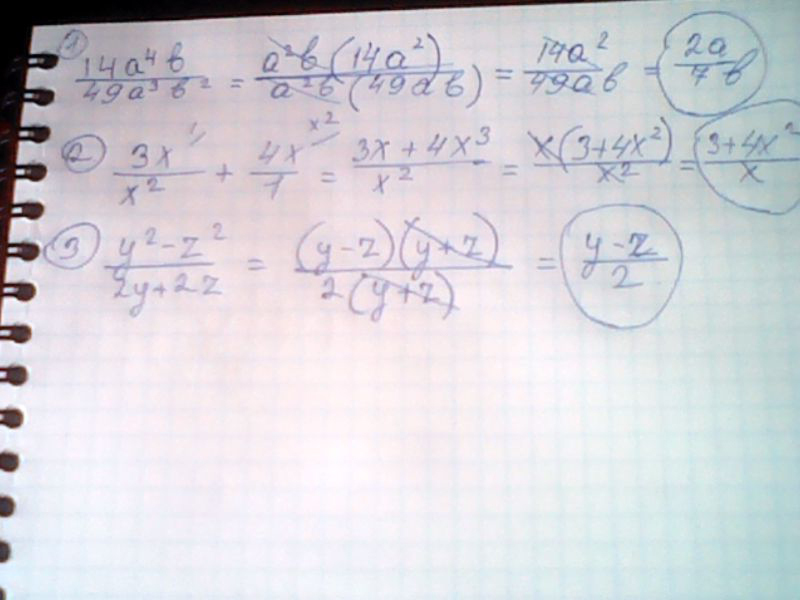 1 14a⁴b / 49a³b² = a²b(14a²) / a²b(49ab) = 14a² / 49ab = 2a / 7b
2 3x / x² + 4x / 1 = 3x + 4x³ / x² = x(3+4x²) / x² = 3+4x² / x
3 y²-z² / 2y+2z = (y-z)(y+z) / 2(y+z) = y-z / 2